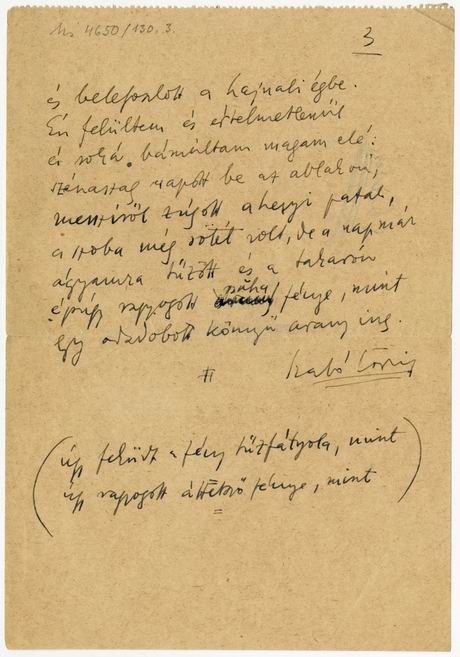 Ms 4650/130.3.
3
és belefoszlott a hajnali égbe.
Én felültem és értelmetlenül
és soká bámúltam magam elé:
szénaszag napott be az ablakon,
messziről zúgott a hegyi patak,
a szoba még sötét volt, de a nap már
ágyamra tűzött és a takarón
puha
épúgy ragyogott fénye, mint
egy odadobott könnyű arany ing.
Szabó Lőrinc
(úgy feküdt a fény tűzfátyola, mint
úgy ragyogott áttetsző fénye, mint)